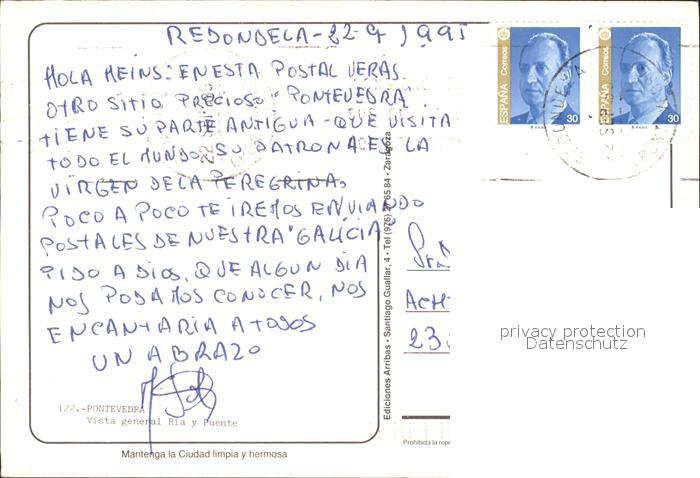 REDONDELA-22-9 1995
HOLA HEINS: EN ESTA POSTAL VERAS
OTRO SITIO PRECIOSO "PONTEVEDRA".
TIENE SU PARTE ANTIGUA-QUE VISITA
TODO EL MUNDO, SU PATRONA ES LA
VIRGEN DE LA PEREGRINA,
POCO A POCO TE IREMOS ENVIANDO
POSTALES DE NUESTRA "GALICIA"
PIDO A DIOS, QUE ALGUN DIA
NOS PODAMOS CONOCER, NOS
ENCANTARIA A TODOS
UN ABRAZO
122.-PONTEVEDRA
Vista general Ria y Puente
Mantenga la Ciudad limpia y hermosa
Ediciones Arribas • Santiago Guallar, 4 • Tel (976) 27 65 84 • Zaragoza
ESPAÑA
Correos
30
ESPAÑA
Correos
30
ACH
23
privacy protection
Datenschutz
Prohibida la repr